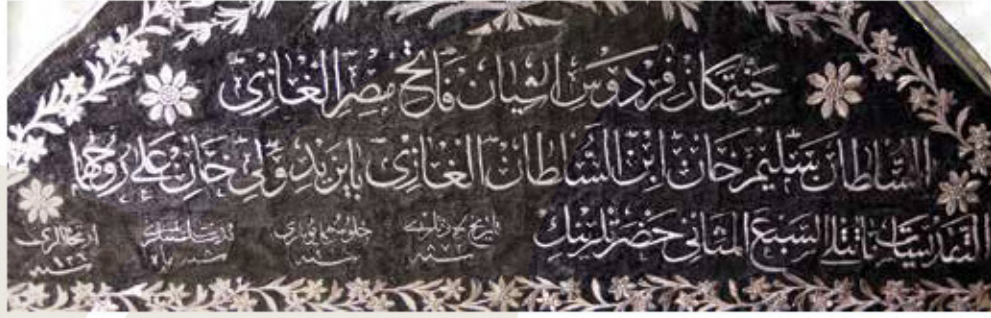 جنتمكان فردوس اشيان فاتح مصر الغازى
السلطان سليم خان ابن السلطان الغازى بايزيد ولى خان على روحهما
التقديسات ما تتلى السبع المثانى حضرتلرينك
تاريخ ولادتلرى جلوس همايونلرى مدت سلطنتلرى ارتحاللرى
سنه ٨٧٢ سنه سنه سنه ٩٢٦